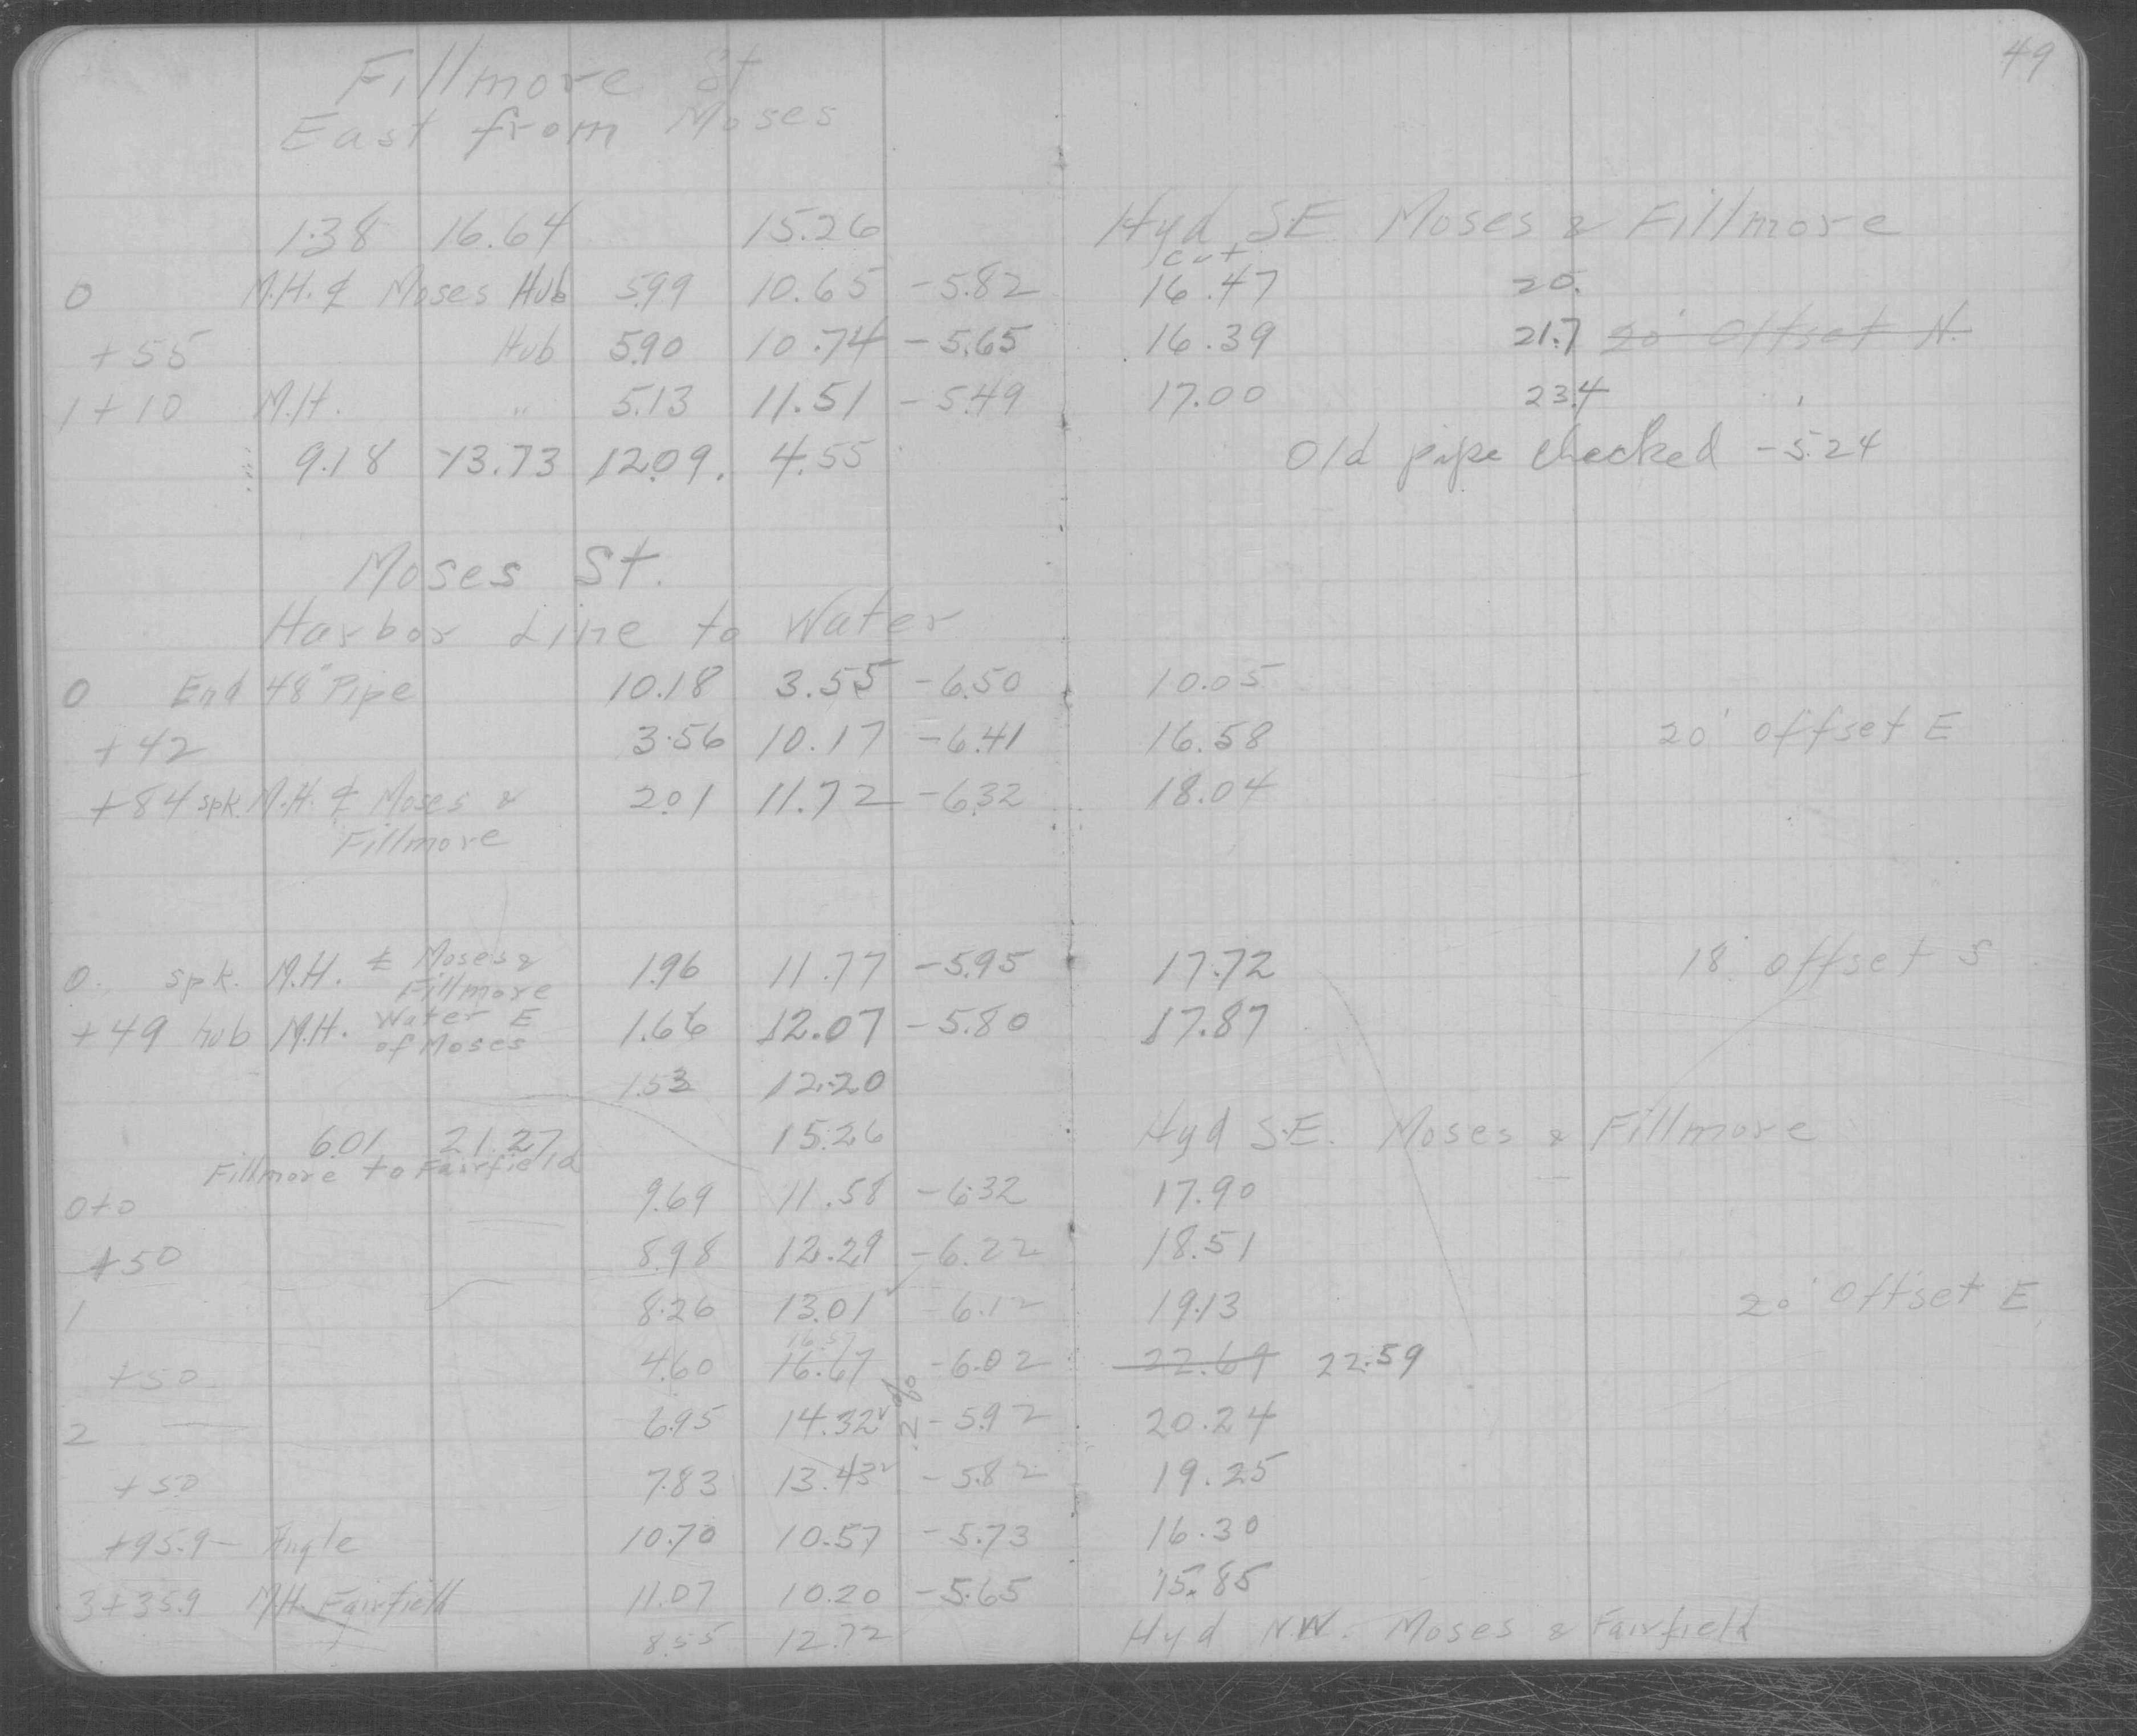 49
Fillmore St
East from Moses
1.38 16.64 15.26 Hyd S.E. Moses & Fillmore
cut
0 M.H. ℄ Moses Hub 5.99 10.65 -5.82 16.47 20.
+55 Hub 5.90 10.74 -5.65 16.39 21.7 20' Offset N.
1+10 M.H. " 5.13 11.51 -5.49 17.00 23.4
9.18 13.73 12.09. 4.55 Old pipe checked -5.24
Moses St.
Harbor Line to Water
0 End 48" Pipe 10.18 3.55 -6.50 10.05
+42 3.56 10.17 -6.41 16.58 20' Offset E
+84 spk. M.H. ℄ Moses & 2.01 11.72 -6.32 18.04
Fillmore
0. spk. M.H. ℄ Moses & 1.96 11.77 -5.95 17.72 18' Offset S
Fillmore
+49 hub M.H. Water E 1.66 12.07 -5.80 17.87
of Moses
1.53 12.20
6.01 21.27 15.26 Hyd S.E. Moses & Fillmore
Fillmore to Fairfield
0+0 9.69 11.58 -6.32 17.90
+50 8.98 12.29 -6.22 18.51
1 8.26 13.01 -6.12 19.13 20' Offset E
16.57
+50 4.60 16.67 -6.02 22.69 22.59
.2%
2 6.95 14.32 -5.92 20.24
+50 7.83 13.43 -5.82 19.25
+95.9 Angle 10.70 10.57 -5.73 16.30
3+35.9 M.H. Fairfield 11.07 10.20 -5.65 15.85
8.55 12.72 Hyd N.W. Moses & Fairfield